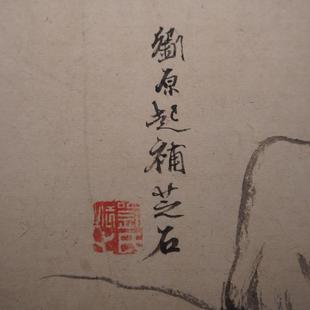 劉原起補芝石